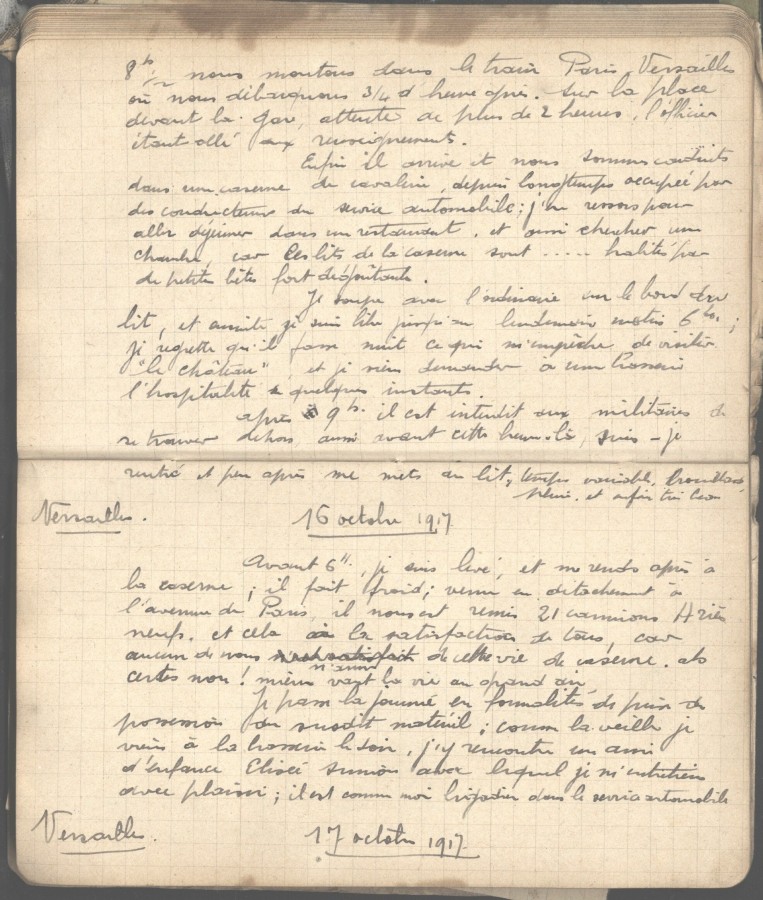 8 h 1/2 nous montons dans le train Paris Versailles
où nous débarquons 3/4 d'heure après. Sur la place
devant la gare, attente de plus de 2 heures, l'officier
étant allé aux renseignements.
Enfin il arrive et nous sommes conduits
dans une caserne de cavalerie, depuis longtemps occupée par
des conducteurs du service automobile; j'en ressors pour
aller déjeuner dans un restaurant, et aussi chercher une
chambre, car les lits de la caserne sont ..... habités par
de petites bêtes fort dégoûtantes.
Je soupe avec l'ordinaire sur le bord du
lit, et ensuite je suis libre jusqu'au lendemain matin 6 hs;
je regrette qu'il fasse nuit ce qui m'empêche de visiter
"le château", et je viens demander à une
l'hospitalité quelques instants.
après 9 h. il est interdit aux militaires de
se trouver dehors, aussi avant cette heure-là, suis-je
rentré et peu après me mets au lit, temps variable, brouillard,
pluie. et enfin très beau
Versailles. 16 octobre 1917
Avant 6 h., je suis levé, et me rends après à
la caserne; il fait froid; venus en détachement à
l'avenue de Paris, il nous est remis 21 camions Ariès
neufs. et cela à la satisfaction de tous, car
aucun de nous n'aime de cette vie de caserne. ah
certes non! mieux vaut la vie au grand air.
Je passe la journée en formalités de prise de
possession du susdit matériel; comme la veille je
viens à la le soir, j'y rencontre un ami
d'enfance Elisée Simon avec lequel je m'entretiens
avec plaisir; il est comme moi brigadier dans le service automobile
Versailles. 17 octobre 1917